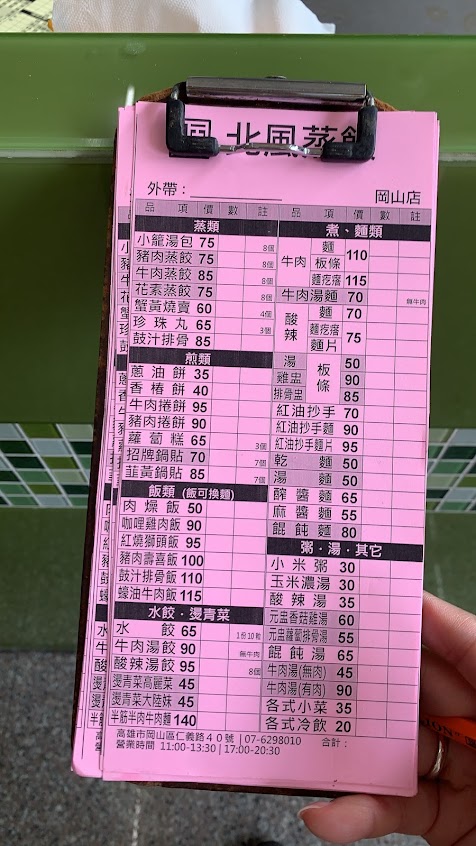 北風蒸餃
外帶：
岡山店
品 項 價 數 註
蒸類
小籠湯包 75 8個
豬肉蒸餃 75 8個
牛肉蒸餃 85 8個
花素蒸餃 75 8個
蟹黃燒賣 60 4個
珍珠丸 65 3個
鼓汁排骨 85
煎類
蔥油餅 35
香椿餅 40
牛肉捲餅 95
豬肉捲餅 90
蘿蔔糕 65 3個
招牌鍋貼 70 7個
韮黃鍋貼 85 7個
飯類 (飯可換麵)
肉燥飯 50
咖哩雞肉飯 90
紅燒獅頭飯 95
豬肉壽喜飯 100
鼓汁排骨飯 110
蠔油牛肉飯 115
水餃．燙青菜
水餃 65 1份10粒
牛肉湯餃 90 無牛肉
酸辣湯餃 95 8個
燙青菜高麗菜 45
燙青菜大陸妹 45
半筋半肉牛肉麵 140
品 項 價 數 註
煮、麵類
牛肉 麵 板條 110
麵疙瘩 115
牛肉湯麵 70 無牛肉
酸辣 麵 70
麵疙瘩 麵片 75
湯 板條 50
雞盅 90
排骨盅 85
紅油抄手 70
紅油抄手麵 90
紅油抄手麵片 95
乾麵 50
湯麵 50
醡醬麵 65
麻醬麵 55
餛飩麵 80
粥．湯．其它
小米粥 30
玉米濃湯 30
酸辣湯 35
元盅香菇雞湯 60
元盅蘿蔔排骨湯 55
餛飩湯 65
牛肉湯(無肉) 45
牛肉湯(有肉) 90
各式小菜 35
各式冷飲 20
高雄市岡山區仁義路４０號 | 07-6298010
合計：
營業時間 11:00-13:30 | 17:00-20:30